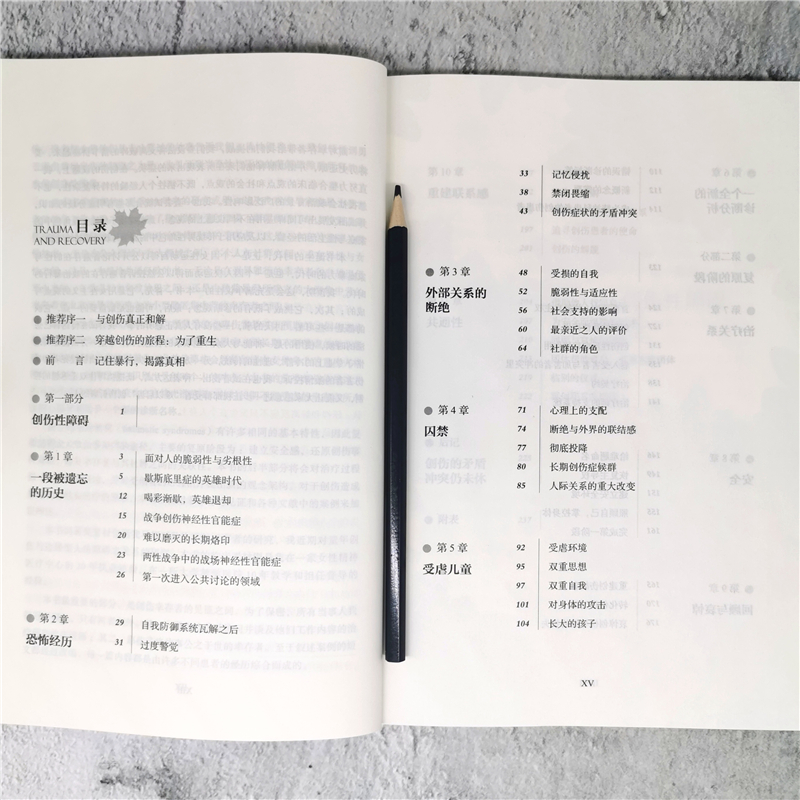 TRAUMA 目录
AND RECOVERY
推荐序一 与创伤真正和解
推荐序二 穿越创伤的旅程:为了重生
前 言 记住暴行,揭露真相
第一部分
创伤性障碍
1
第 1 章
一段被遗忘
的历史
3 面对人的脆弱性与劣根性
5 歇斯底里症的英雄时代
12 喝彩渐歇,英雄退却
15 战争创伤神经性官能症
20 难以磨灭的长期烙印
23 两性战争中的战场神经性官能症
26 第一次进入公共讨论的领域
第 2 章
恐怖经历
29 自我防御系统瓦解之后
31 过度警觉
33 记忆侵扰
38 禁闭畏缩
43 创伤症状的矛盾冲突
第 3 章
外部关系的
断绝
48 受损的自我
52 脆弱性与适应性
56 社会支持的影响
60 最亲近之人的评价
64 社群的角色
第 4 章
囚禁
71 心理上的支配
74 断绝与外界的联结感
77 彻底投降
80 长期创伤症候群
85 人际关系的重大改变
第 5 章
受虐儿童
92 受虐环境
95 双重思想
97 双重自我
101 对身体的攻击
104 长大的孩子
XV